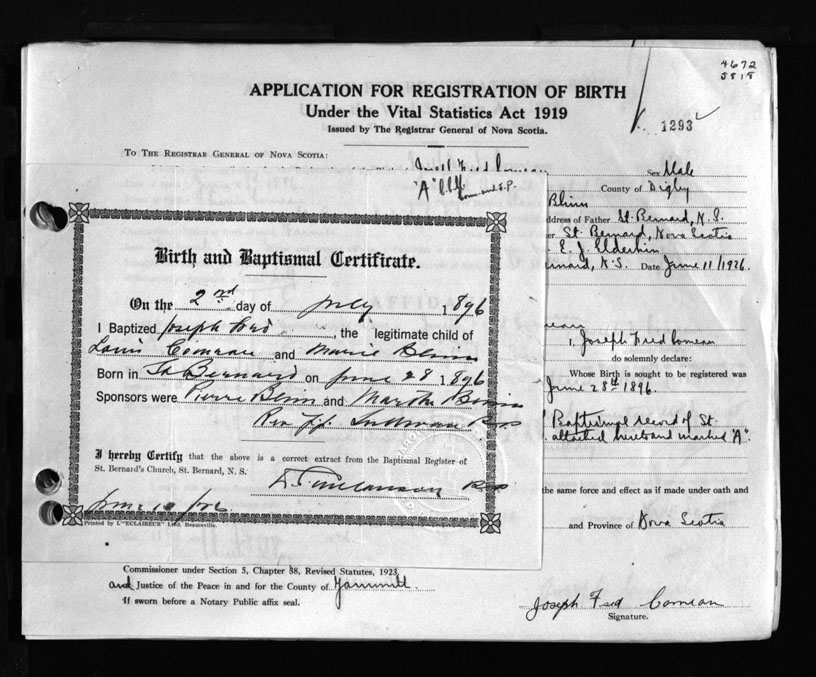 4672
5818
APPLICATION FOR REGISTRATION OF BIRTH
Under the Vital Statistics Act 1919
Issued by The Registrar General of Nova Scotia.
1293
TO THE REGISTRAR GENERAL OF NOVA SCOTIA:
Fred Comeau
Sex Male
"A"
County of Digby
Blinn
ddress of Father St. Bernard, N.S.
er St. Bernard, Nova Scotia
E. J. Elderkin
ernard, N.S. Date June 11/1926.
Birth and Baptismal Certificate.
On the 2nd day of July 1896
I Baptized Joseph Fred, the legitimate child of
Louis Comeau and Marie Blinn
Born in St Bernard on June 28 1896
Sponsors were Pierre Blinn and Martha Blinn
Rev
I hereby Certify that the above is a correct extract from the Baptismal Register of
St. Bernard's Church, St. Bernard, N. S.
Printed by L'"ECLAIREUR" Ltd, Beauceville.
eau
I, Joseph Fred Comeau
do solemnly declare:
Whose Birth is sought to be registered was
June 28th 1896.
Baptismal record of St.
attached hereto and marked "A".
the same force and effect as if made under oath and
and Province of Nova Scotia
Commissioner under Section 5, Chapter 88, Revised Statutes, 1923
and Justice of the Peace in and for the County of Yarmouth
If sworn before a Notary Public affix seal.
Joseph Fred Comeau
Signature.